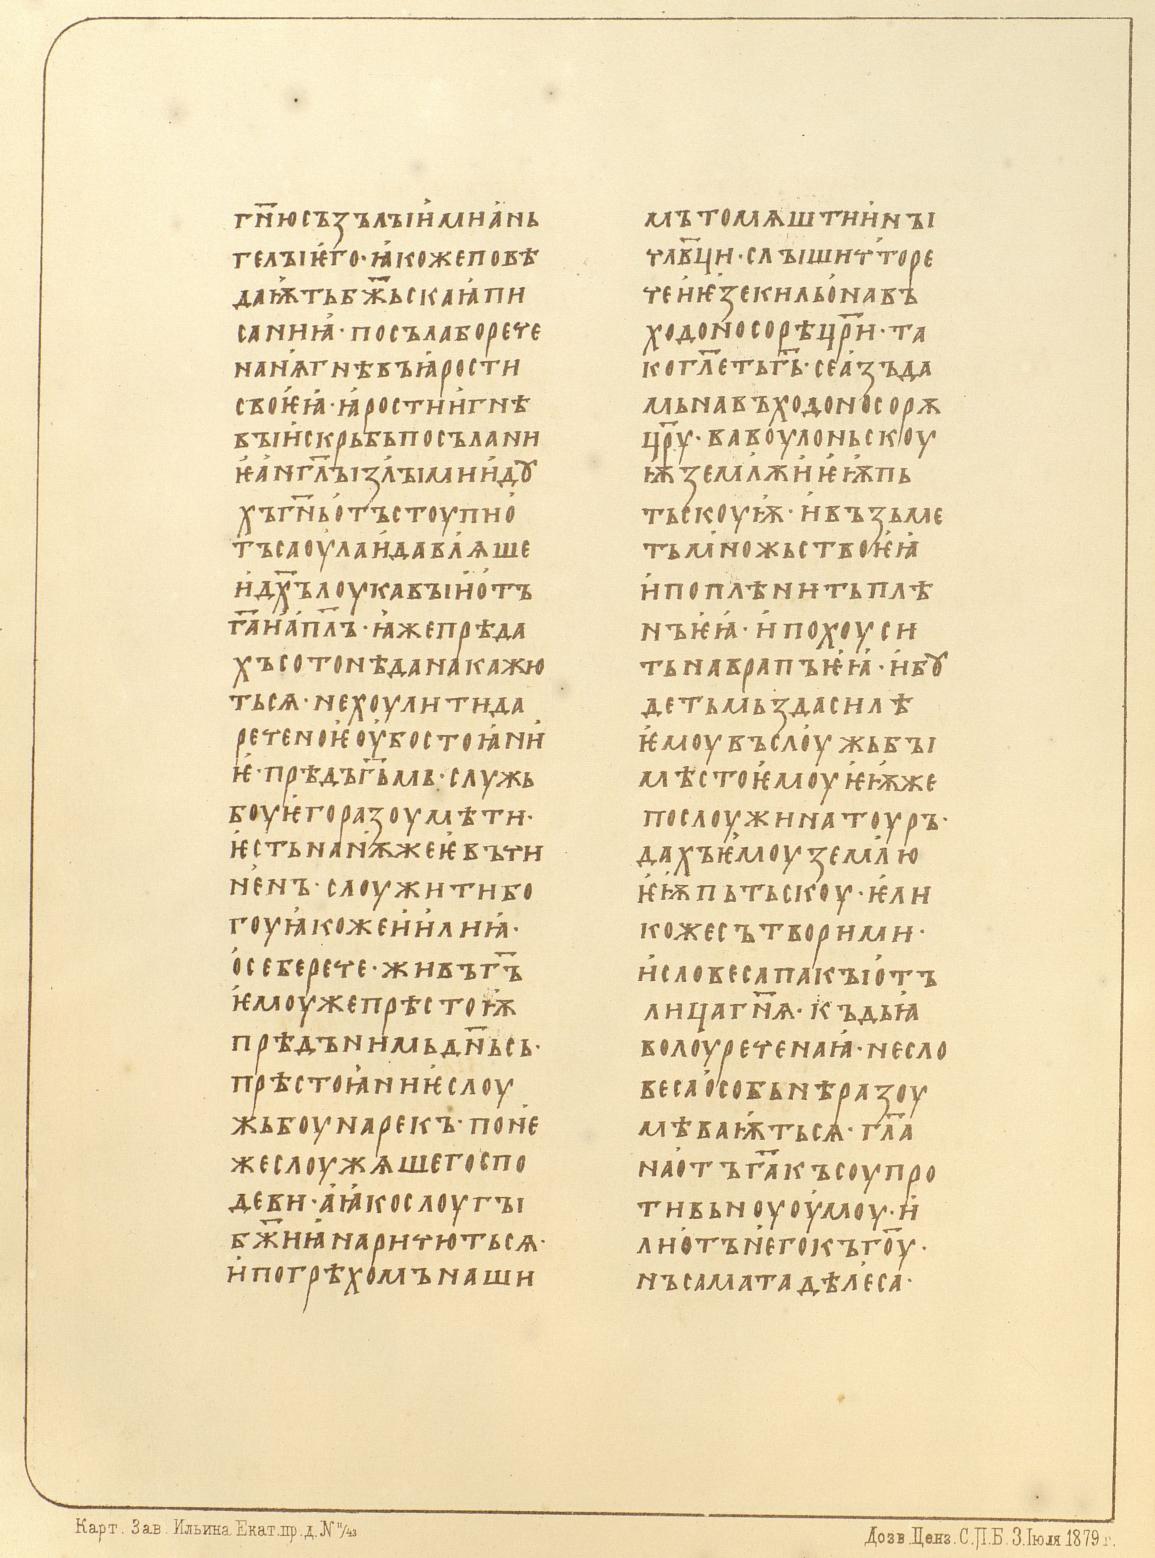 гн҃юсъзълꙑимиань
гелꙑѥго·ꙗкожеповѣ
даѭтьбж҃ьскаꙗпи
саниꙗ·посълаборече
нанѧгнѣвъꙗрости
своѥꙗ·ꙗростиигнѣ
вꙑискрьбьпосълани
ѥангл҃ꙑзълꙑмиидꙋ
хъгн҃ьотъстоупио
тъсаоулаидавлꙗше
идх҃ълоукавꙑиотъ
га҃иапл҃ъ·ꙗжепрѣда
хъсотонѣданакажю
тьсѧ·нехоулитида
реченоѥоубостоꙗни
ѥ·прѣдъгь҃мь·служь
боуѥгоразоумѣти·
ѥстьнанѭжеѥвъчи
ненъ·слоужитибо
гоуꙗкожеиилиꙗ·
осеберече·живъгъ҃
ѥмоужепрѣстоѭ
прѣдънимьдн҃ьсь·
прѣстоꙗниѥслоу
жьбоунарекъ·поне
жеслоужѧшегоспо
деви·аꙗкослоугꙑ
бж҃иꙗнаричютьсѧ·
ипогрѣхомънаши
мътомѧштиинꙑ
члв҃ци·слꙑшичторе
чеиѥзекильонавъ
ходоносорѣцр҃и·та
когл҃етьгь҃·сеазъда
мьнавъходоносорѫ
цр҃у·вавоулоньскоу
ѭземлѭиѥѭпь
тьскоуѭ·ивъзьме
тьмножьствоѥꙗ
ипоплѣнитьплѣ
нъѥꙗ·ипохоуси
тьнаврапъѥꙗ·ибꙋ
детьмьздасилѣ
ѥмоувъслоужьбꙑ
мѣстоѥмоуѥѭже
послоужинатоуръ·
дахъѥмоуземлю
ѥѭпьтьскоу·ѥли
кожесътворими·
исловесапакꙑотъ
лицагн҃ѧ·къдьꙗ
волоуреченаꙗ·несло
весаособьнѣразоу
мѣваѭтьсѧ·гл҃а
наотъга҃късоупро
тивьноуоумоу·и
лиотънегокъго҃у·
нъсаматадѣлеса·
Карт. Зав. Ильина Екат. пр. д. N 11/43
Дозв. Ценз. С.П.Б. 3. Іюля 1879 г.